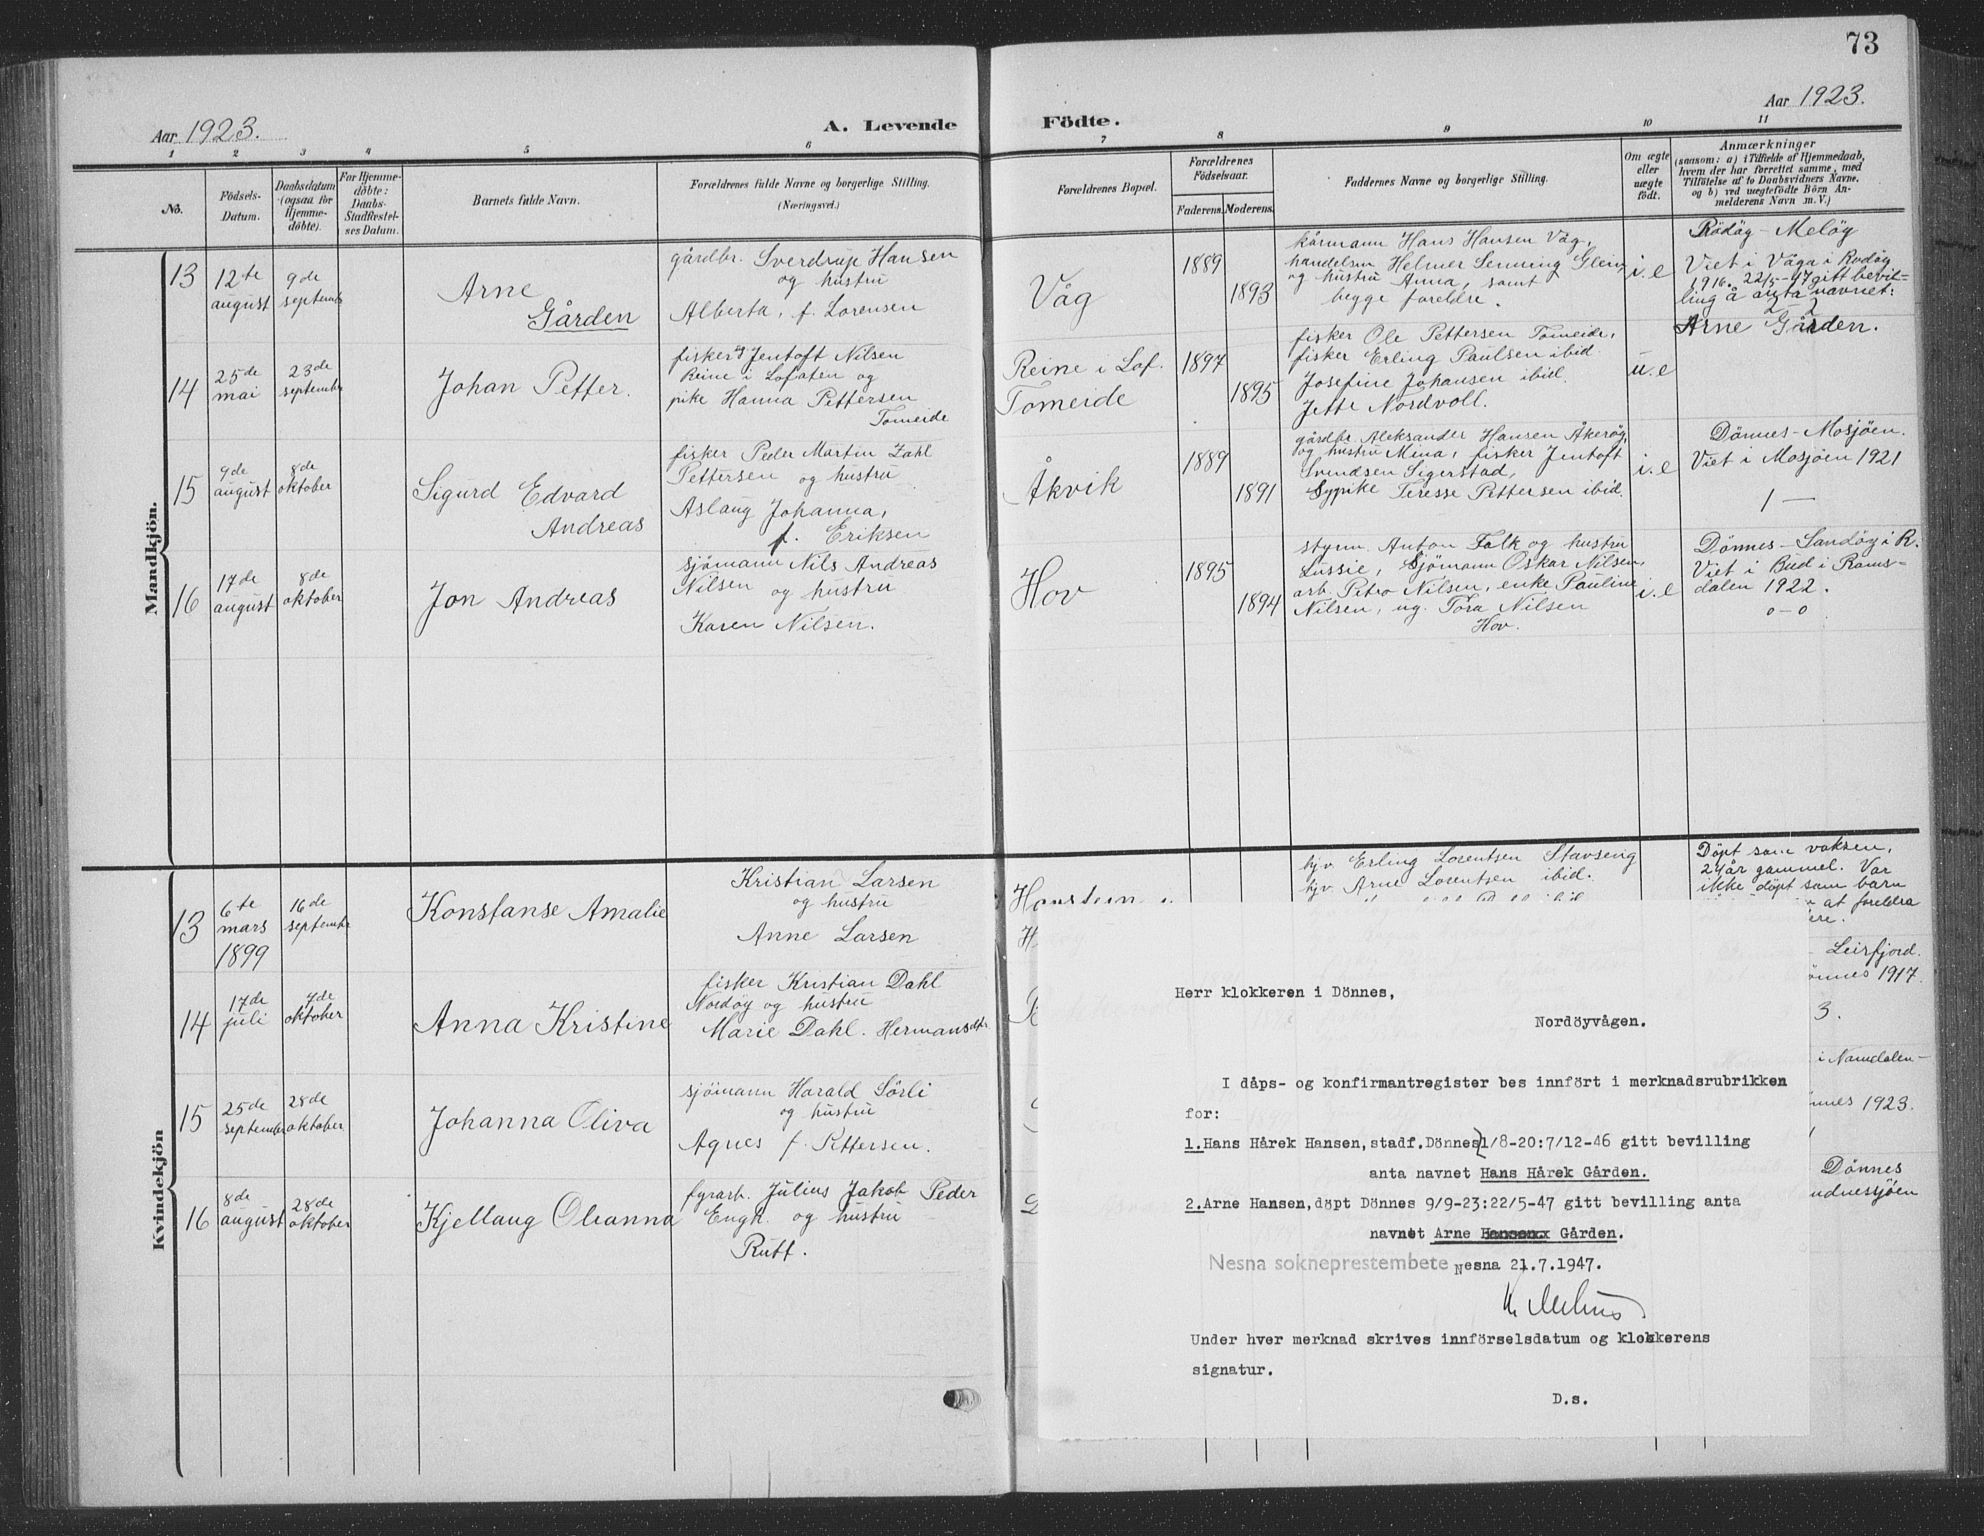 73
Aar 1923.
A. Levende
Födte.
Aar 1923.
1 2 3 4 5 6 7 8 9 10 11
No.
Födsels-
Datum.
Daabsdatum
(ogsaa for
Hjemme-
döbte).
For Hjemme-
döbte:
Daabs-
Stadfæstel-
ses Datum.
Barnets fulde Navn.
Forældrenes fulde Navne og borgerlige Stilling.
(Næringsvei.)
Forældrenes Bopæl.
Forældrenes
Födselsaar.
Faderens. Moderens.
Faddernes Navne og borgerlige Stilling.
Om ægte
eller
uægte
födt.
Anmærkninger
(saasom: a) i Tilfælde af Hjemmedaab,
hvem der har forrettet samme, med
Tilföielse af to Daabsvidners Navne.
og b) ved uægtefödte Börn An-
melderens Navn m. V.)
Mandkjön.
13
12te
august
9de
septemb
Arne
Gården
gårdbr. Sverdrup Hansen
og hustru
Alberta, f. Lorensen
Våg
1889
1893
kårmann Hans Hansen Våg,
handelsm Helmer Senning Glein
og hustru Anna, samt
begge foreldre.
i. e
Rödöy - Melöy
Viet i Våga i Rödöy
1916. 22/5-47 gitt bevil-
ling å anta navnet:
Arne Gården.
14
25de
mai
23de
september
Johan Petter.
fisker Jentoft Nilsen
Reine i Lofoten og
pike Hanna Pettersen
Tomeide
Reine i Lof.
Tomeide
1897
1895
fisker Ole Pettersen Tomeide,
fisker Erling Paulsen ibid.
Josefine Johansen ibid.
Jette Nordvoll.
u. e
15
9de
august
8de
oktober
Sigurd Edvard
Andreas
fisker Peder Martin Zahl
Pettersen og hustru
Aslaug Johanna,
f. Eriksen
Åkvik
1889
1891
gårdbr. Aleksander Hansen Åkeröy,
og hustru Mina, fisker Jentoft
Svendsen Sigerstad,
Sypike Teresse Pettersen ibid.
i. e
Dönnes - Mosjöen.
Viet i Mosjöen 1921
1 —
16
17de
august
8de
oktober
Jon Andreas
sjömann Nils Andreas
Nilsen og hustru
Karen Nilsen.
Hov
1895
1894
styrm. Anton Falk og hustru
Lussie, Sjömann Oskar Nilsen,
arb. Petro Nilsen, enke Pauline
Nilsen, ug. Tora Nilsen
Hov.
i. e
Dönnes - Sandöy i R.
Viet i Bud i Roms-
dalen 1922.
o - o
Kvindekjön
13
6te
mars
1899
16de
septembr
Konstanse Amalie
Kristian Larsen
og hustru
Anne Larsen
hjv. Erling Lorentsen Stavseng
hjv. Arne Lorentsen ibid.
Döpt som voksen,
24 år gammel. Var
ikke döpt som barn
at foreldra
ere.
14
17de
juli
7de
oktober
Anna Kristine
fisker Kristian Dahl
Nordöy og hustru
Marie Dahl. Hermansdtr.
Leirfjord.
önnes 1917.
3.
15
25de
september
28de
oktober
Johanna Oliva
sjömann Harald Sörli
og hustru
Agnes f. Pettersen.
i Namdalen -
nnes 1923.
16
8de
august
28de
oktober
Kjellaug Oleanna
fyrarb. Julius Jakob Peder
Engh. og hustru
Rutt.
Dönnes
ndnessjöen
Herr klokkeren i Dönnes,
Nordöyvågen.
I dåps- og konfirmantregister bes innfört i merknadsrubrikken
for:
1.Hans Hårek Hansen,stadf.Dönnes 1/8-20:7/12-46 gitt bevilling
anta navnet Hans Hårek Gården.
2.Arne Hansen,döpt Dönnes 9/9-23:22/5-47 gitt bevilling anta
navnet Arne Hansenx Gården.
Nesna sokneprestembete Nesna 21.7.1947.
Under hver merknad skrives innförselsdatum og klokkerens
signatur.
D.s.